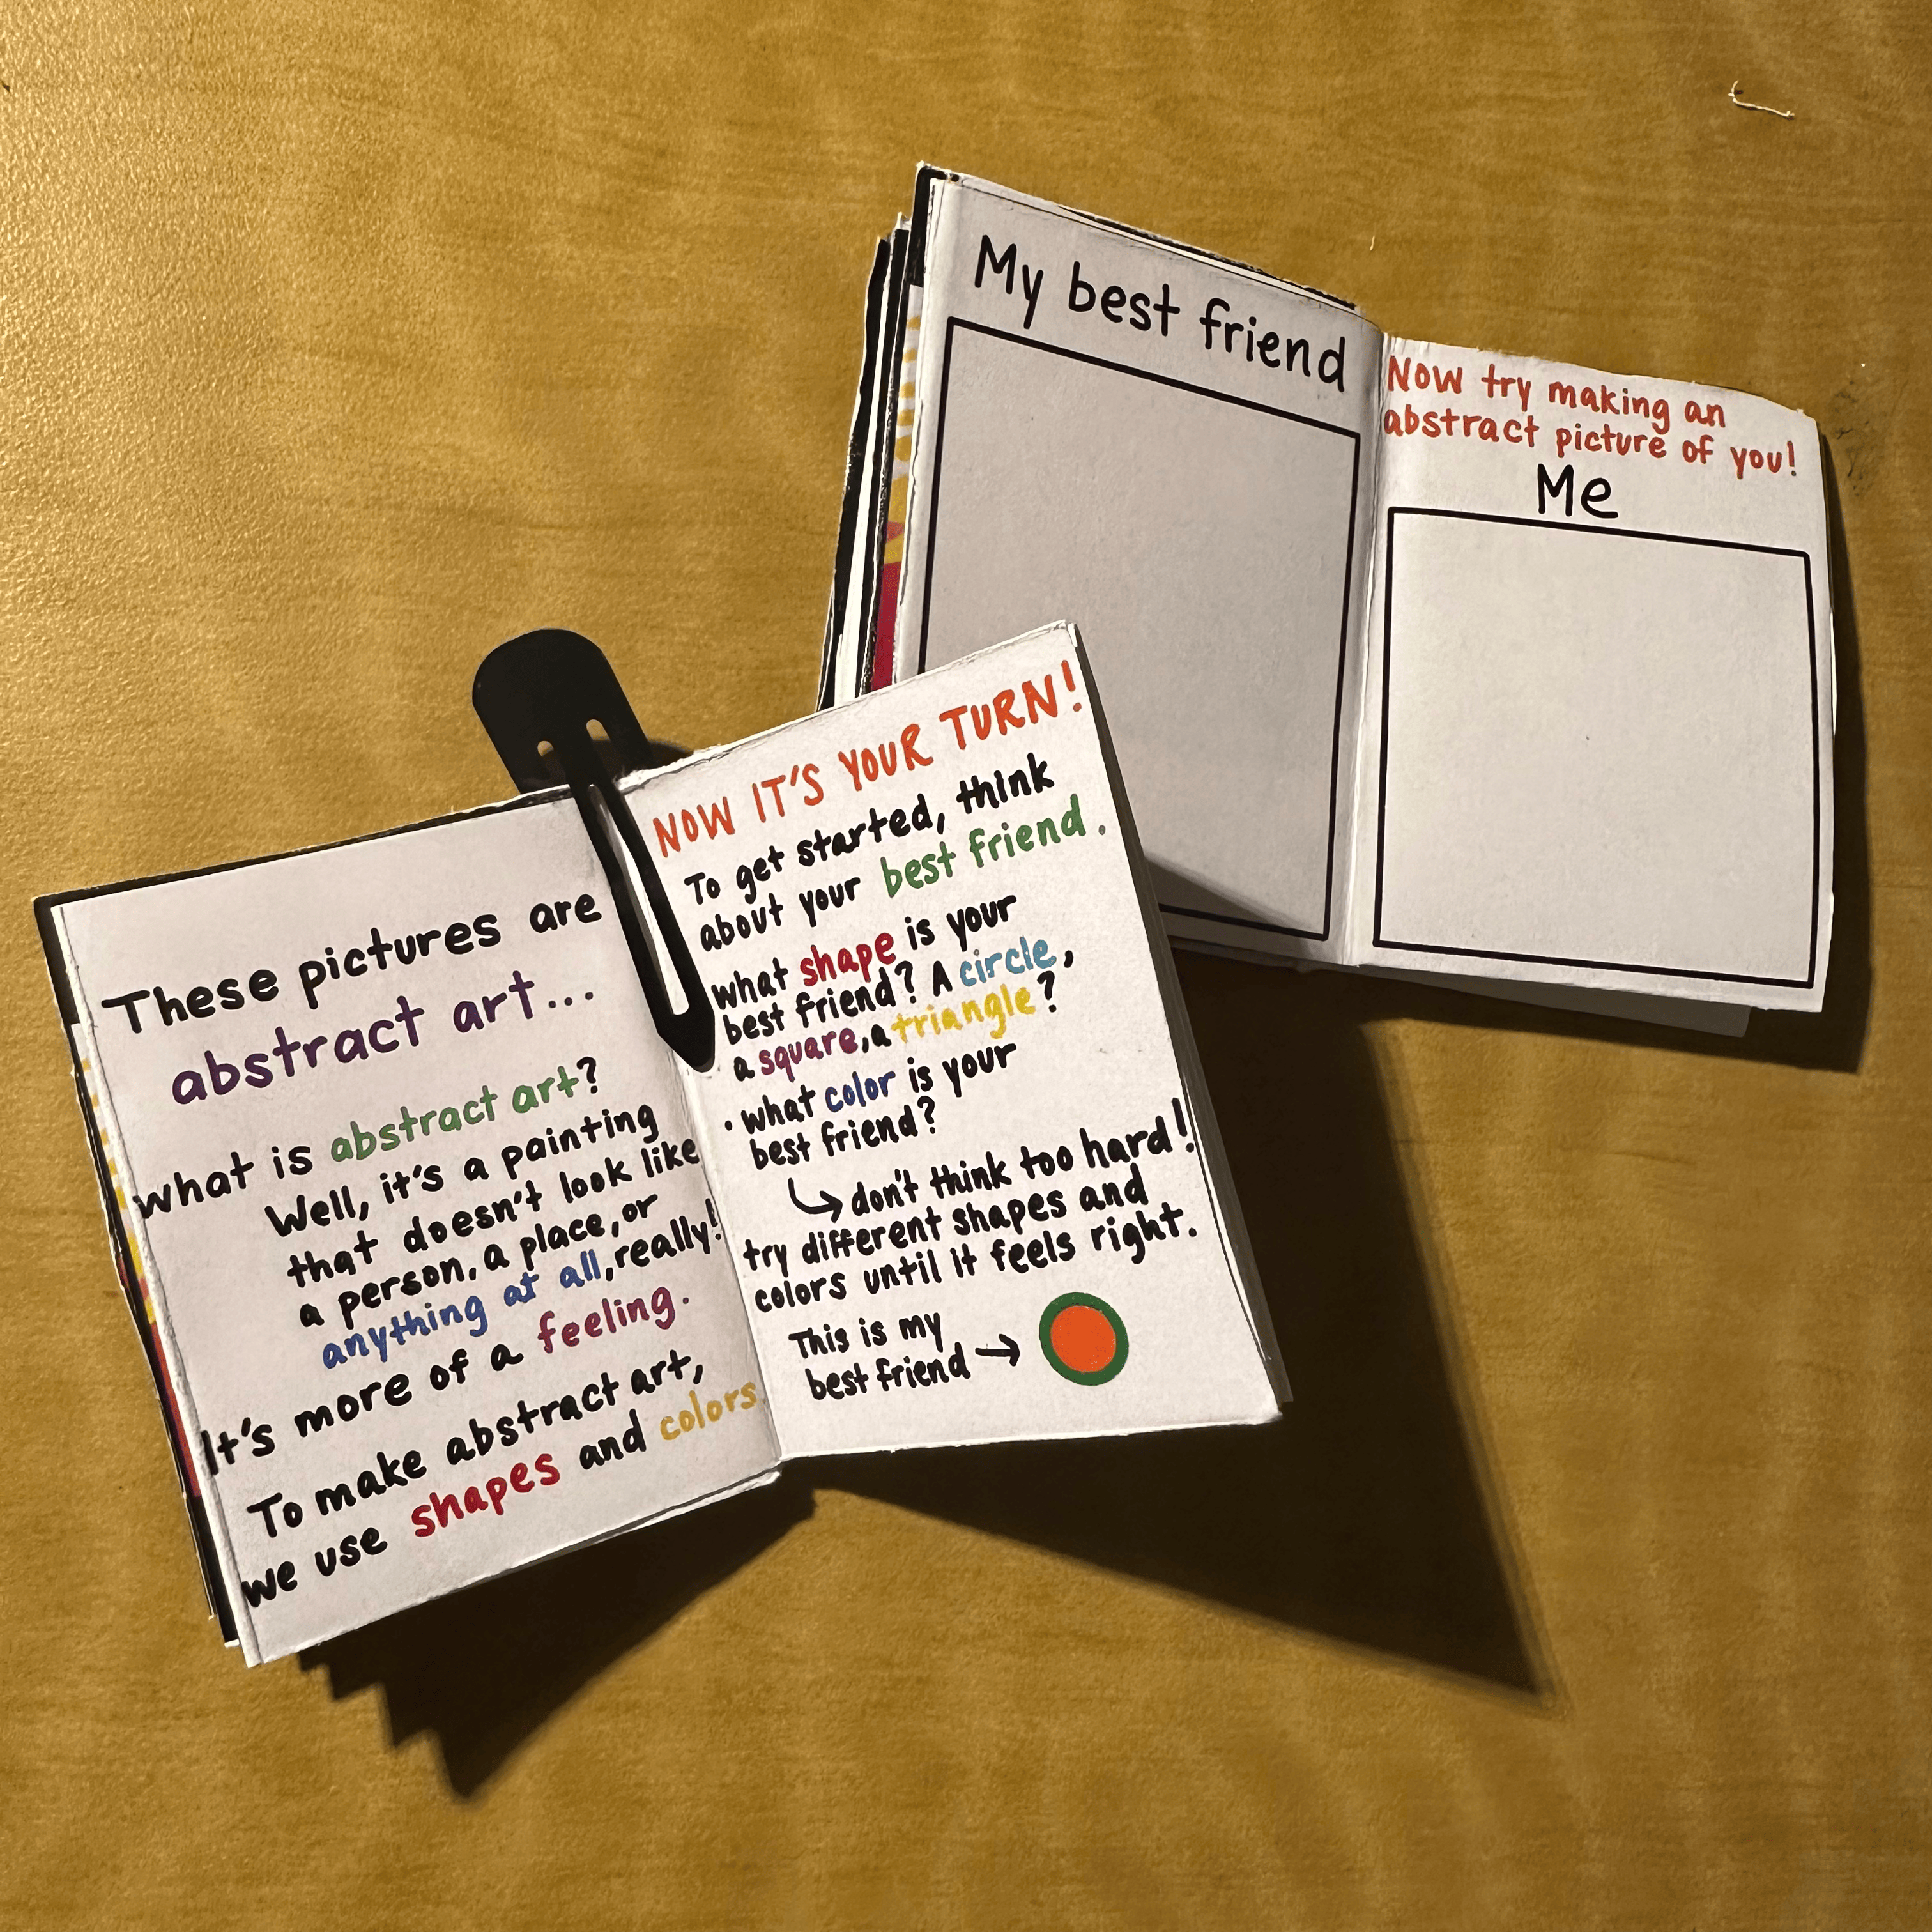 These pictures are
abstract art...
what is abstract art?
Well, it's a painting
that doesn't look like
a person, a place, or
anything at all, really!
It's more of a feeling.
To make abstract art,
we use shapes and colors.
NOW IT'S YOUR TURN!
To get started, think
about your best friend.
what shape is your
best friend? A circle,
a square, a triangle?
· what color is your
best friend?
↳ don't think too hard!
try different shapes and
colors until it feels right.
This is my
best friend →
My best friend
Now try making an
abstract picture of you!
Me